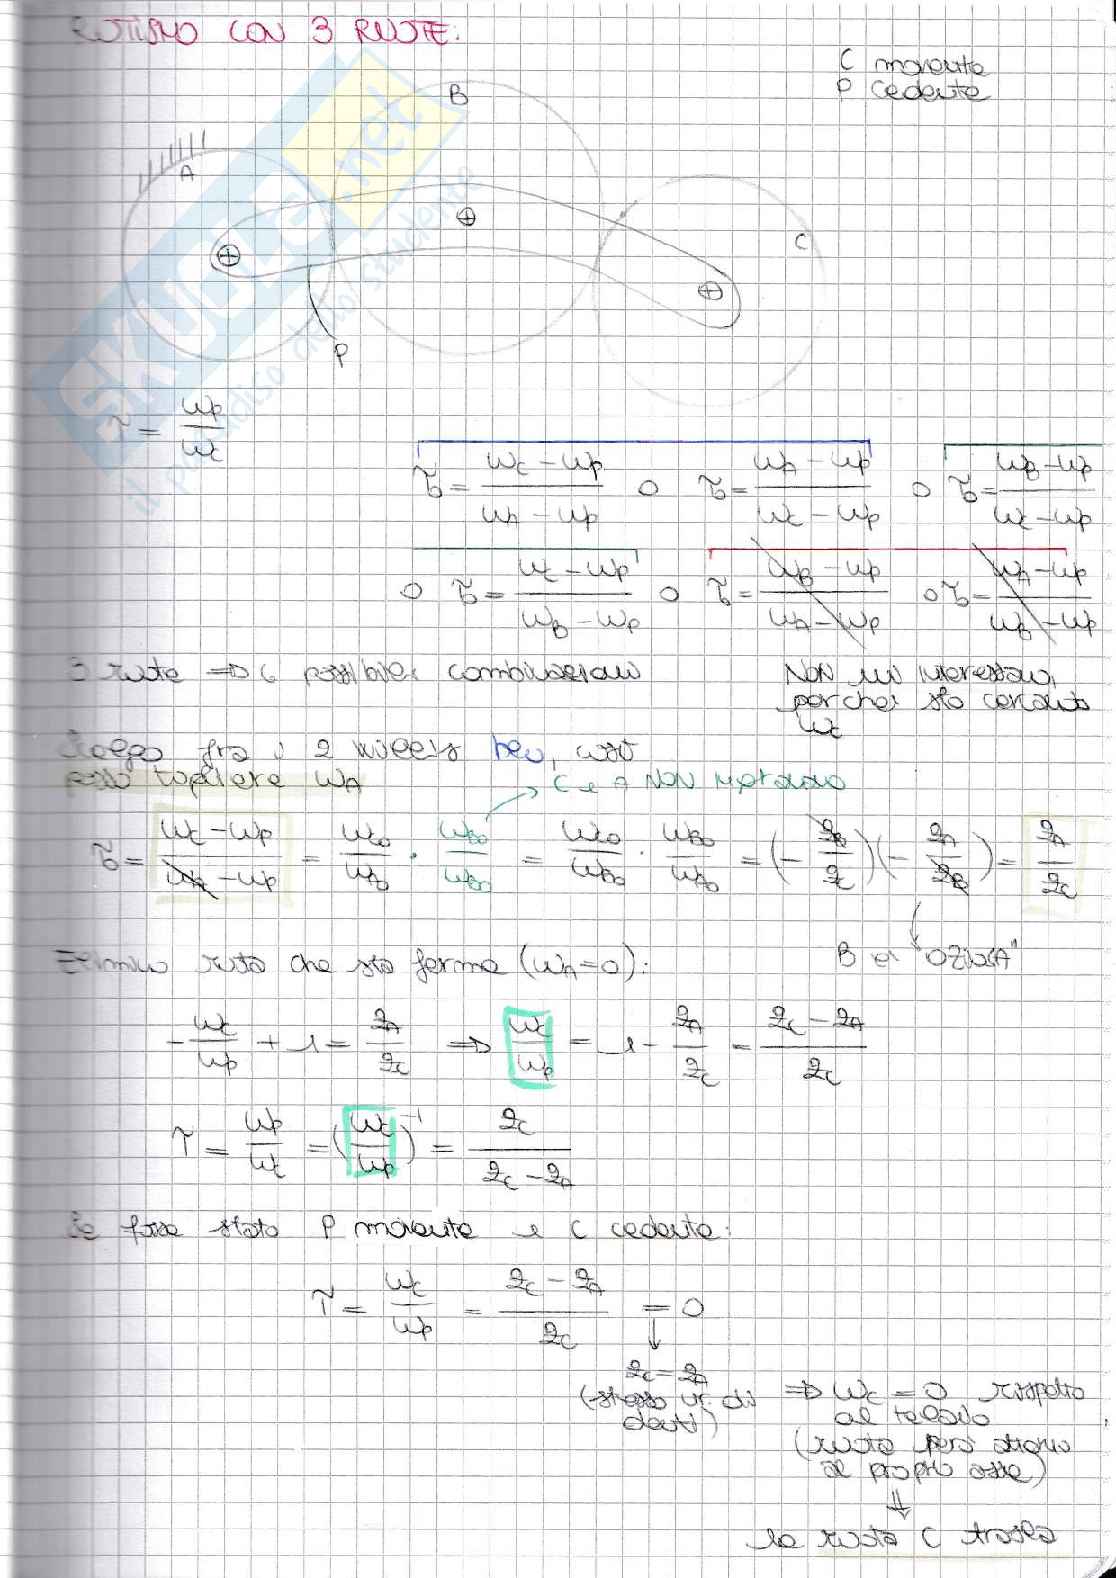 ROTISMO CON 3 RUOTE:
C movente
P cedente
B
A
C
P
SKUOLA.net
il paradiso dello studente
τ = ωp/ωc
τ₀ = (ωc - ωp)/(ωA - ωp) o τ₀ = (ωA - ωp)/(ωc - ωp) o τ₀ = (ωB - ωp)/(ωc - ωp)
o τ₀ = (ωc - ωp)/(ωB - ωp) o τ₀ = (ωB - ωp)/(ωA - ωp) o τ₀ = (ωA - ωp)/(ωB - ωp)
3 ruote ⇒ 6 possibili combinazioni
Non mi interessano,
perché sto cercando
ωc
Scelgo fra i 2 blu, così
posso togliere ωA
C e A NON ingranano
τ₀ = (ωc - ωp)/(ωA - ωp) = ωc₀/ωA₀ · ωB₀/ωB₀ = ωc₀/ωB₀ · ωB₀/ωA₀ = (- zB/zc)(- zA/zB) = zA/zc
B è "OZIOSA"
Elimino ruota che sta ferma (ωA = 0):
- ωc/ωp + 1 = zA/zc ⇒ ωc/ωp = 1 - zA/zc = (zc - zA)/zc
τ = ωp/ωc = (ωc/ωp)⁻¹ = zc/(zc - zA)
Se fosse stato P movente e C cedente:
τ = ωc/ωp = (zc - zA)/zc = 0
zc = zA
(stesso nr. di
denti)
⇒ ωc = 0 rispetto
al telaio
(ruota però attorno
al proprio asse)
⇓
la ruota C trasla